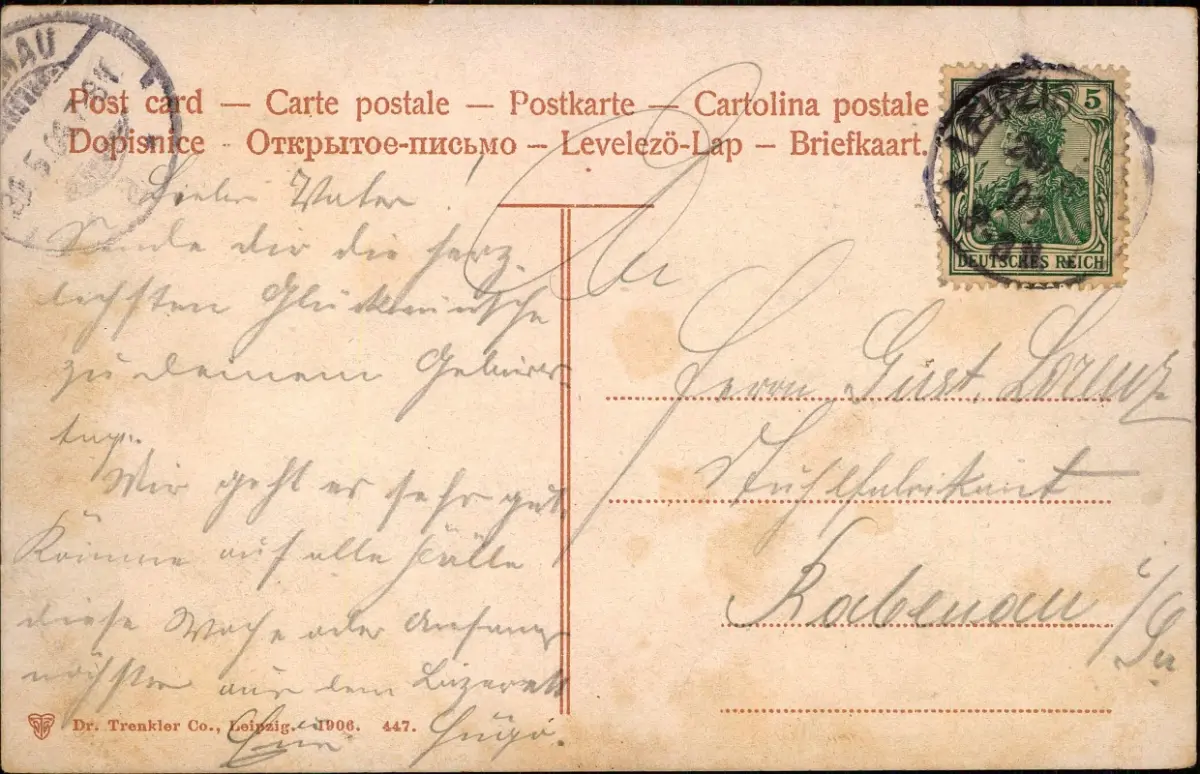 Post card — Carte postale — Postkarte — Cartolina postale
Dopisnice - Открытое-письмо – Levelezö-Lap – Briefkaart.
LEIPZIG
5
DEUTSCHES REICH
Lieber Vater!
Sende dir die herz-
lichsten Glückwünsche
zu deinem Geburts-
tag.
Mir geht es sehr gut,
Komme auf alle Fälle
diese Woche oder Anfang
nächster aus dem Lazarett
Dein Hugo.
An
Herrn Gust. Lorenz
Stuhlfabrikant
Rabenau i/Sa
Dr. Trenkler Co., Leipzig. 1906. 447.